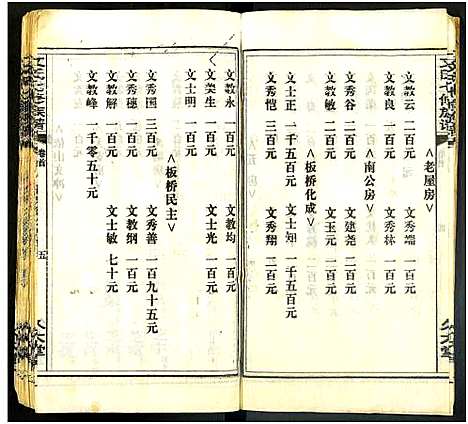 文氏七修族谱
<老屋房>
文教云 二百元 文秀端 一百元
文教良 一百元 文秀林 一百元
<南公房>
文秀谷 二百元 文建尧 二百元
文敏 一百元 文玉元 二百元
<板桥化成>
文士正 一千五百元 文士知 一千五百元
文秀恺 三百元 文秀翔 三百元
文教永 一百元 文教均 一百元
文美生 一百元 文士光 一百元
文士明 一百元
<板桥民主>
文秀图 三百元 文秀善 一百九十五元
文秀穗 一百元 文教纲 一百元
文教解 一百元 文士敏 七十元
文教峰 一千零五十元
文氏七修族谱
卷首
五